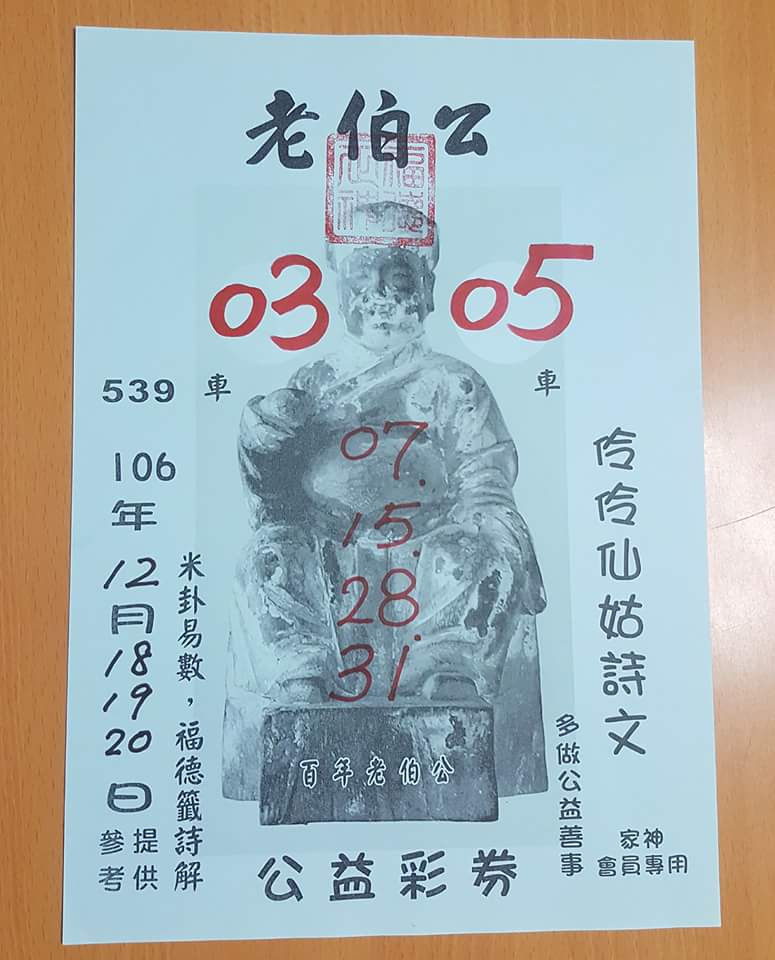 老伯公
福德正神
03 05
539 車 車
07.
15.
28.
31
106年12月18 19 20日
提供參考
米卦易數，福德籤詩解
伶伶仙姑詩文
多做公益善事
百年老伯公
公益彩券
家神
會員專用